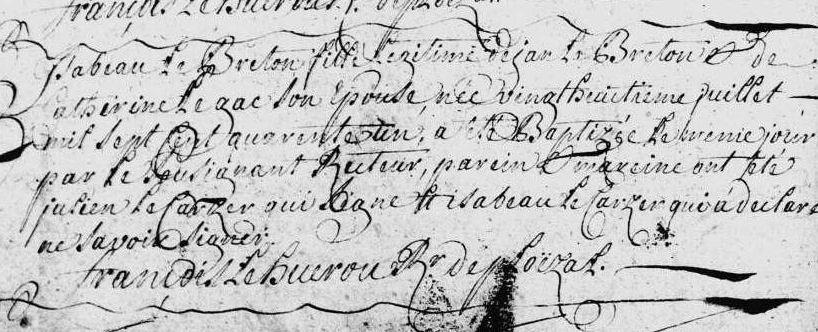 françois Le huerou Rr de ploizal
Isabeau Le Breton fille Legitime de jan Le Breton & de
Catherine Le gac son Epouse, née vingt huitieme juillet
mil sept cent quarente un, a eté Baptizée Le meme jour
par Le Soussignant Recteur, parein & mareine ont eté
julien Le Carzer qui signe Et isabeau Le Carzer qui a declaré
ne savoir signer.
françois Le huerou Rr de ploizal.